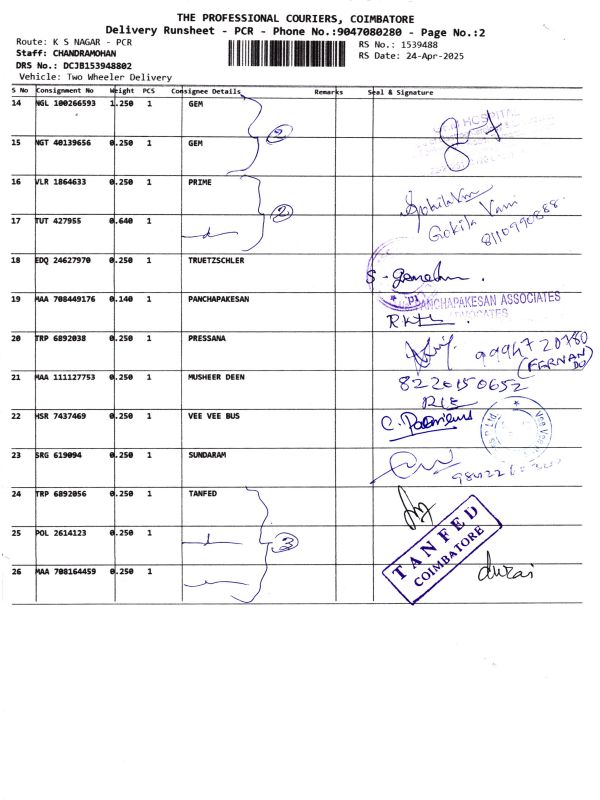 THE PROFESSIONAL COURIERS, COIMBATORE
Delivery Runsheet - PCR - Phone No.:9047080280 - Page No.:2
Route: K S NAGAR - PCR
RS No.: 1539488
Staff: CHANDRAMOHAN
RS Date: 24-Apr-2025
DRS No.: DCJB153948802
Vehicle: Two Wheeler Delivery
S No Consignment No Weight PCS Consignee Details Remarks Seal & Signature
14 NGL 100266593 1.250 1 GEM
HOSPITAL
2
15 NGT 40139656 0.250 1 GEM
16 VLR 1864633 0.250 1 PRIME
Gokila Vani
8110990888
2
17 TUT 427955 0.640 1
18 EDQ 24627970 0.250 1 TRUETZSCHLER
19 MAA 708449176 0.140 1 PANCHAPAKESAN
PANCHAPAKESAN ASSOCIATES
ADVOCATES
20 TRP 6892038 0.250 1 PRESSANA
9994720780
(FERNANDO)
21 MAA 111127753 0.250 1 MUSHEER DEEN
8220150652
22 HSR 7437469 0.250 1 VEE VEE BUS
23 SRG 619094 0.250 1 SUNDARAM
24 TRP 6892056 0.250 1 TANFED
TANFED
COIMBATORE
25 POL 2614123 0.250 1
3
26 MAA 708164459 0.250 1
durai